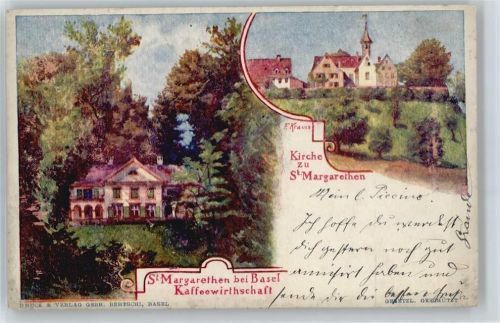 F. Krauss
Kirche
zu
St. Margarethen
Mein l. Piccino.
Ich hoffe du werdest
dich gestern noch gut
amüsirt haben und
sende dir die besten
St. Margarethen bei Basel
Kaffeewirthschaft
DRUCK & VERLAG GEBR. BERTSCHI, BASEL
GESETZL. GESCHÜTZT